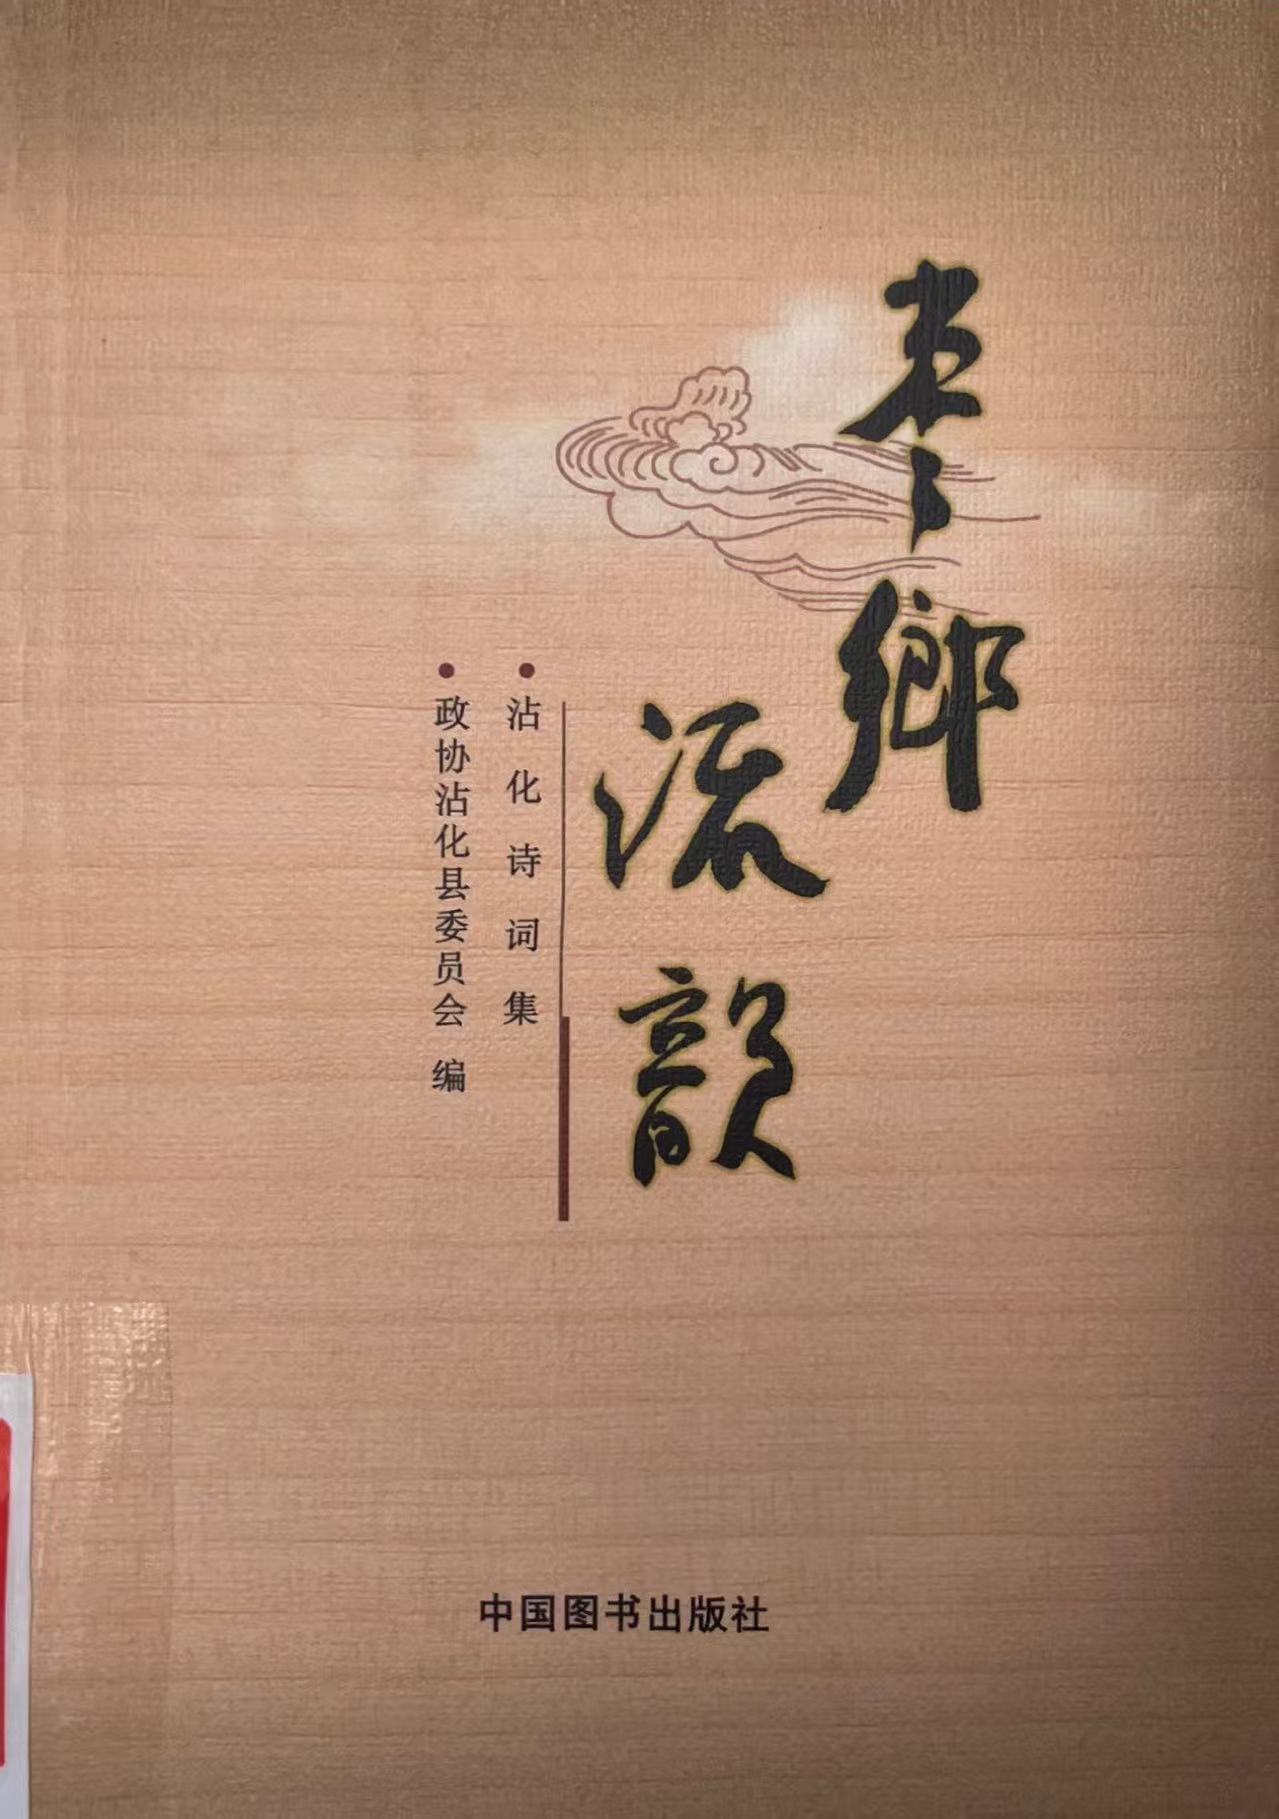 枣鄉
流韵
沾化诗词集
政协沾化县委员会 编
中国图书出版社